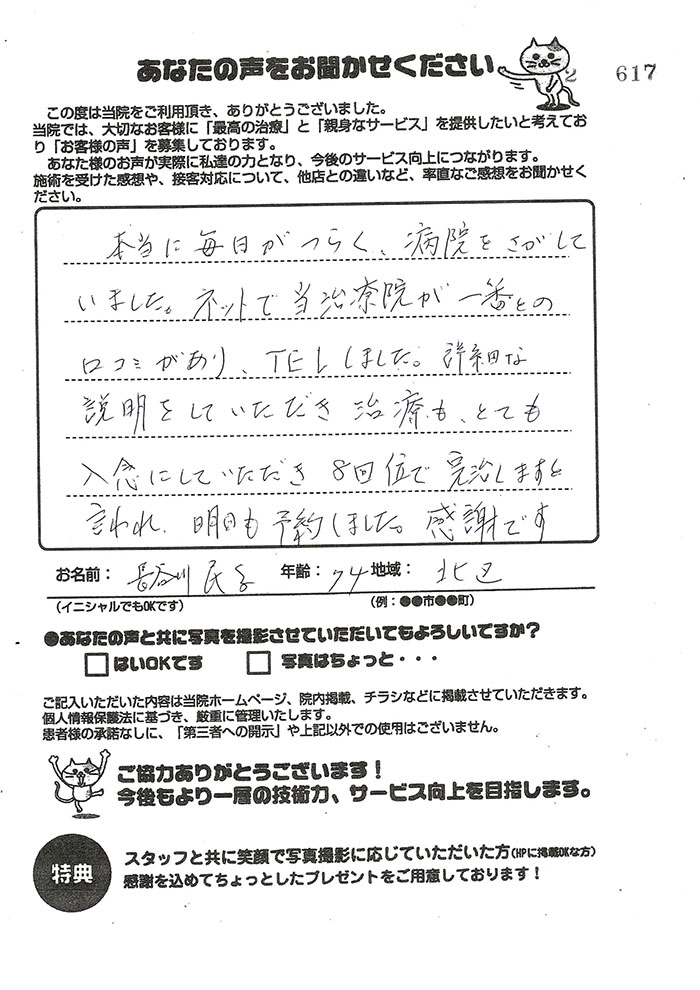 あなたの声をお聞かせください
2 617
この度は当院をご利用頂き、ありがとうございました。
当院では、大切なお客様に「最高の治療」と「親身なサービス」を提供したいと考えてお
り「お客様の声」を募集しております。
あなた様のお声が実際に私達の力となり、今後のサービス向上につながります。
施術を受けた感想や、接客対応について、他店との違いなど、率直なご感想をお聞かせく
ださい。
本当に毎日がつらく、病院をさがして
いました。ネットで当治療院が一番との
口コミがあり、TELしました。詳細な
説明をしていただき治療も、とても
入念にしていただき8回位で完治しますと
言われ、明日も予約しました。感謝です
お名前： 長谷川 民子 年齢： 74 地域： 北区
（イニシャルでもOKです） （例：●●市●●町）
●あなたの声と共に写真を撮影させていただいてもよろしいですか？
□はいOKです □写真はちょっと・・・
ご記入いただいた内容は当院ホームページ、院内掲載、チラシなどに掲載させていただきます。
個人情報保護法に基づき、厳重に管理いたします。
患者様の承諾なしに、「第三者への開示」や上記以外での使用はございません。
ご協力ありがとうございます！
今後もより一層の技術力、サービス向上を目指します。
特典
スタッフと共に笑顔で写真撮影に応じていただいた方（HPに掲載OKな方）
感謝を込めてちょっとしたプレゼントをご用意しております！